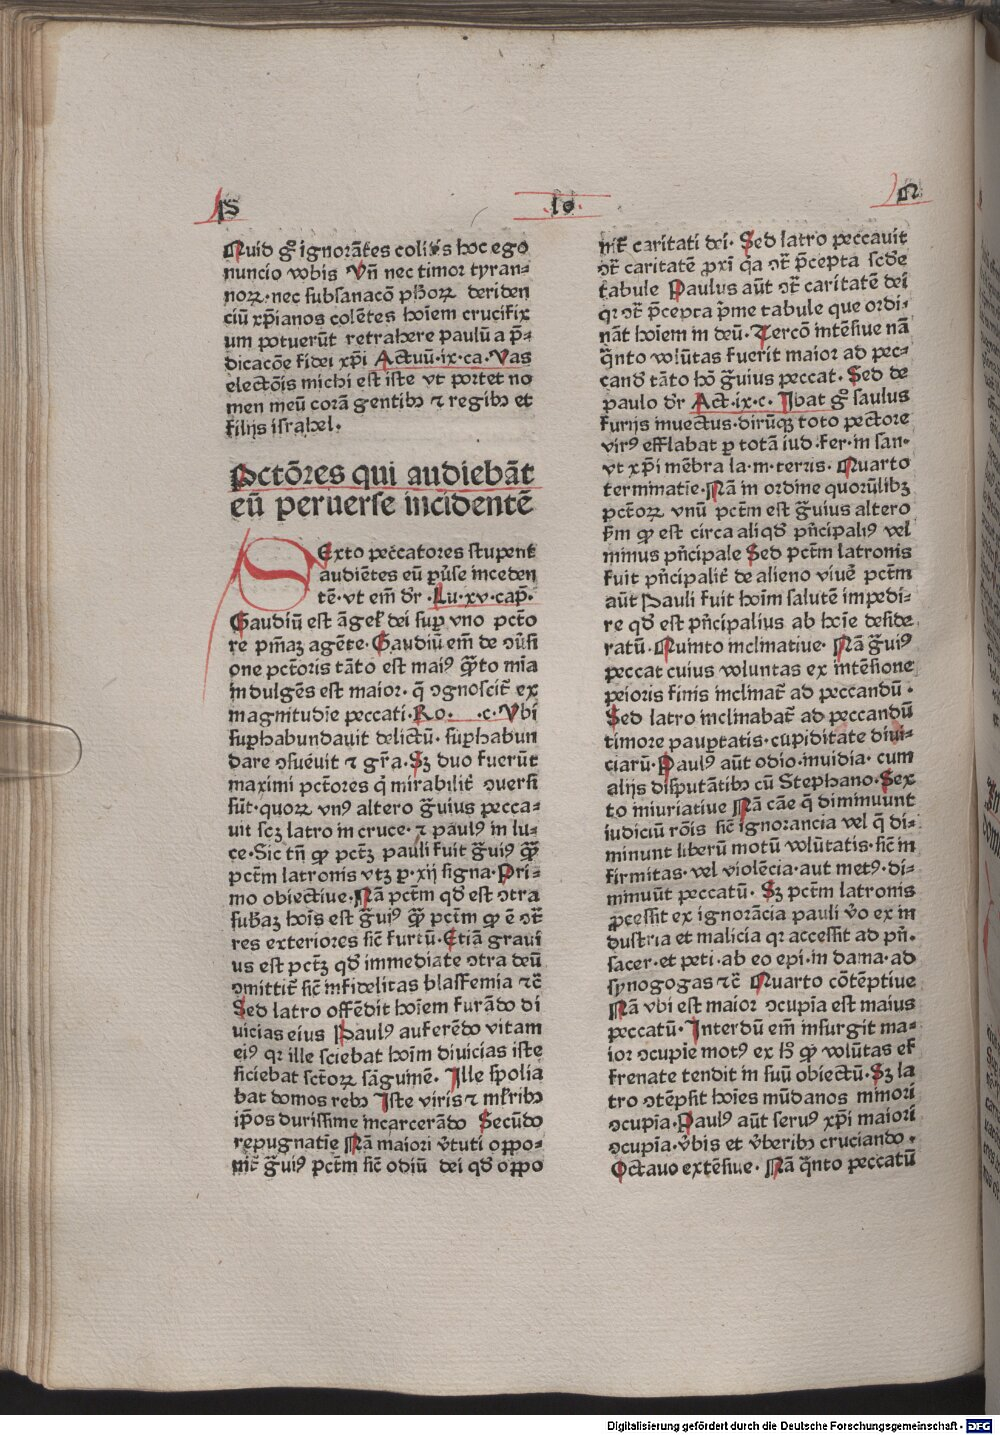 S
10
N
Quid gͦ ignorātes colitis hoc ego
nuncio vobis Vn̄ nec timor tyran-
noꝝ·nec subsanacō pħoꝝ deriden
ciū xp̄ianos colētes hoīem crucifix
um potuerūt retrahere paulū a p̄-
dicacōe fidei xp̄i Actuū·ix·ca·Vas
electōis michi est iste vt portet no
men meū corā gentibꝫ ⁊ regibꝫ et
filijs israhel.
Pctōres qui audiebāt
eū peruerse incidentē
Sexto peccatores stupent
audiētes eū ꝑuͥse inceden
tē·vt em̄ dr̄ ·Lu·xv·cap̄·
Gaudiū est āgeƚ dei suꝑ vno pctō
re pn̄iaꝫ agēte·Gaudiū em̄ de ↄūsi
one pctōris tāto est maiꝰ q̄̄to mīa
indulgēs est maior·q̄ ↄgnoscit̄ ex
magnitudīe peccati·Ro· ·c·Vbi
suꝑhabundauit delictū·suꝑhabun
dare ↄsueuit ⁊ gr̄a·Sꝫ duo fuerūt
maximi pctōres q̇ mirabilit̄ ↄuersi
sūt·quoꝝ vnꝰ altero g̃uius pecca-
uit scꝫ latro in cruce·⁊ paulꝰ in lu-
ce·Sic tn̄ ꝙ pct̄ꝫ pauli fuit g̃uiꝰ q̄̄
pctm̄ latronis vtꝫ ꝑ·xij signa·Pri-
mo obiectiue·Nā pctm̄ qd̄ est ↄtra
subāꝫ hoīs est g̃uiꝰ q̄̄ pctm̄ ꝙ ē ↄt̄
res exteriores sic̄ furtū·Etiā graui
us est pct̄ꝫ qd̄ immediate ↄtra deū
ↄmittit̄ sic̄ infidelitas blasfemia ⁊c̄
Sed latro offēdit hoīem furādo di
uicias eius Paulꝰ auferēdo vitam
eiꝰ qr ille sciebat hoīm diuicias iste
siciebat sctōꝝ sāguinē· Ille spolia
bat domos rebꝫ Iste viris ⁊ mƚribꝫ
ip̄os durissime incarcerādo Secūdo
repugnatīe Nā maiori v̄tuti oppo-
nit̄ g̃uiꝰ pctm̄ sic̄ odiū dei qd̄ oppo
nit̄ caritati dei· Sed latro peccauit
ↄt̄ caritatē ꝓxī q̇a ↄt̄ p̄cepta scd̄e
tabule Paulus aūt ↄt̄ caritatē dei
qr ↄt̄ p̄cepta p̄me tabule que ordi-
nāt hoīem in deū·Tercō intēsiue nā
q̄nto volūtas fuerit maior ad pec-
cand̄ tāto hō g̃uius peccat· Sed de
paulo dr̄ Act̄·ix·c· Ibat gͦ saulus
furijs inuectus·dirūqꝫ toto pectore
virꝰ efflabat ꝑ totā iud·fer·in san·
vt xp̄i mēbra la·m·terris· Quarto
terminatīe·Nā in ordine quorūlibꝫ
pctōꝝ vnū pctm̄ est g̃uius altero
ẜm ꝙ est circa aliqd̄ pn̄cipaliꝰ vel
minus pn̄cipale Sed pctm̄ latronis
fuit pn̄cipalit̄ de alieno viuē̄ pctm̄
aūt Pauli fuit hoīm salutē impedi-
re qd̄ est pn̄cipalius ab hoīe deside
ratū· Quinto inclinatiue· Nā g̃uiꝰ
peccat cuius voluntas ex intēsione
peioris finis inclinat̄ ad peccandū ·
Sed latro inclinabat̄ ad peccandū
timore pauꝑtatis·cupiditate diui-
ciarū·Paulꝰ aūt odio·inuidia· cum
alijs disputātibꝫ cū Stephano·Sex
to iniuriatiue Nā cāe q̄ diminuunt
iudiciū rōis sic̄ ignorancia vel q̄ di-
minunt liberū motū volūtatis·sic̄ in
firmitas·vel violēcia·aut metꝰ·di-
minuūt peccatū· Sꝫ pctm̄ latronis
ꝓcessit ex ignorācia pauli v̄o ex in
dustria et malicia qr accessit ad pn̄·
sacer·et peti·ab eo epi·in dama·ad
synogogas ⁊c̄ Quarto cōtēptiue
Nā vbi est maior ↄcupīa est maius
peccatū· Interdū em̄ insurgit ma-
ior ↄcupīe motꝰ ex hͦ ꝙ volūtas ef
frenate tendit in suū obiectū·Sꝫ la
tro ↄtēpsit hoīes mūdanos minori
ↄcupīa·Paulꝰ aūt seruꝰ xp̄i maiori
ↄcupīa·v̄bis et v̄beribꝫ cruciando·
Octauo extēsiue· Nā q̄nto peccatū
Digitalisierung gefördert durch die Deutsche Forschungsgemeinschaft - DFG